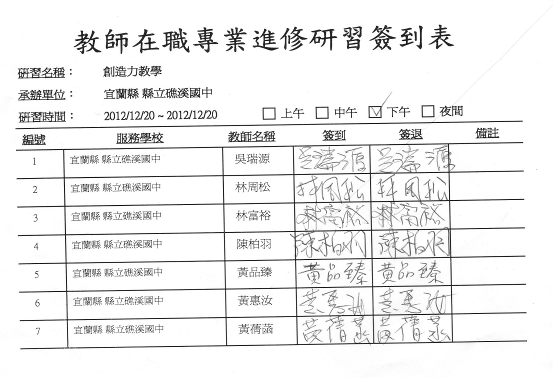 教師在職專業進修研習簽到表
研習名稱： 創造力教學
承辦單位： 宜蘭縣 縣立礁溪國中
研習時間： 2012/12/20 ~ 2012/12/20 □ 上午 □ 中午 ☑ 下午 □ 夜間
編號 服務學校 教師名稱 簽到 簽退 備註
1 宜蘭縣 縣立礁溪國中 吳瑞源 吳瑞源 吳瑞源
2 宜蘭縣 縣立礁溪國中 林周松 林周松 林周松
3 宜蘭縣 縣立礁溪國中 林富裕 林富裕 林富裕
4 宜蘭縣 縣立礁溪國中 陳柏羽 陳柏羽 陳柏羽
5 宜蘭縣 縣立礁溪國中 黃品臻 黃品臻 黃品臻
6 宜蘭縣 縣立礁溪國中 黃惠汝 黃惠汝 黃惠汝
7 宜蘭縣 縣立礁溪國中